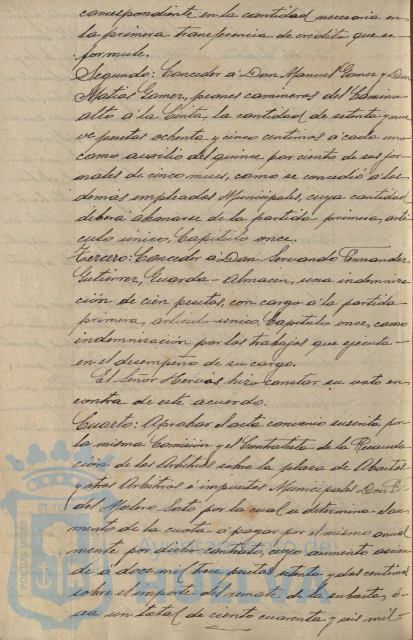 correspondiente en la cantidad necesaria en
la primera transferencia de crédito, que se
formule.
Segundo: Conceder á Don Manuel Gomez y Don
Matias Gomez, peones camineros del Camino
alto á la Cinta, la cantidad de setenta y nue
ve pesetas ochenta y cinco centimos á cada uno
como auxilio del quince por ciento de sus jor
nales de cinco meses, como se concedió á los
demás empleados Municipales, cuya cantidad
deberá abonarse de la partida primera, artí
culo único, Capitulo once.
Tercero: Conceder á Don Servando Fernandez
Gutierrez, Guarda-Almacen, una indemniza
ción de cien pesetas, con cargo á la partida
primera, artículo único, Capitulo once, como
indemnización por los trabajos que ejecuta
en el desempeño de su cargo.
El Señor Hervás hizo constar su voto en
contra de este acuerdo.
Cuarto: Aprobar el acta convenio suscrita por
la misma Comisión y el Contratista de la Recauda
ción de los Arbitrios sobre la plaza de Abastos
y otros Arbitrios é impuestos Municipales Don
del Molino Soto por la cual se determina el au
mento de la cuota á pagar por el mismo anual
mente por dicho contrato, cuyo aumento ascien
de á doce mil trece pesetas ochenta y dos centimos
sobre el importe del remate de la subasta, ó
sea un total de ciento cuarenta y seis mil
Ayuntamiento de
HUELVA
PORTUS MARIS